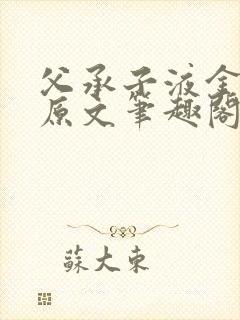 父承子液全
原文笔趣阁
蘇大東